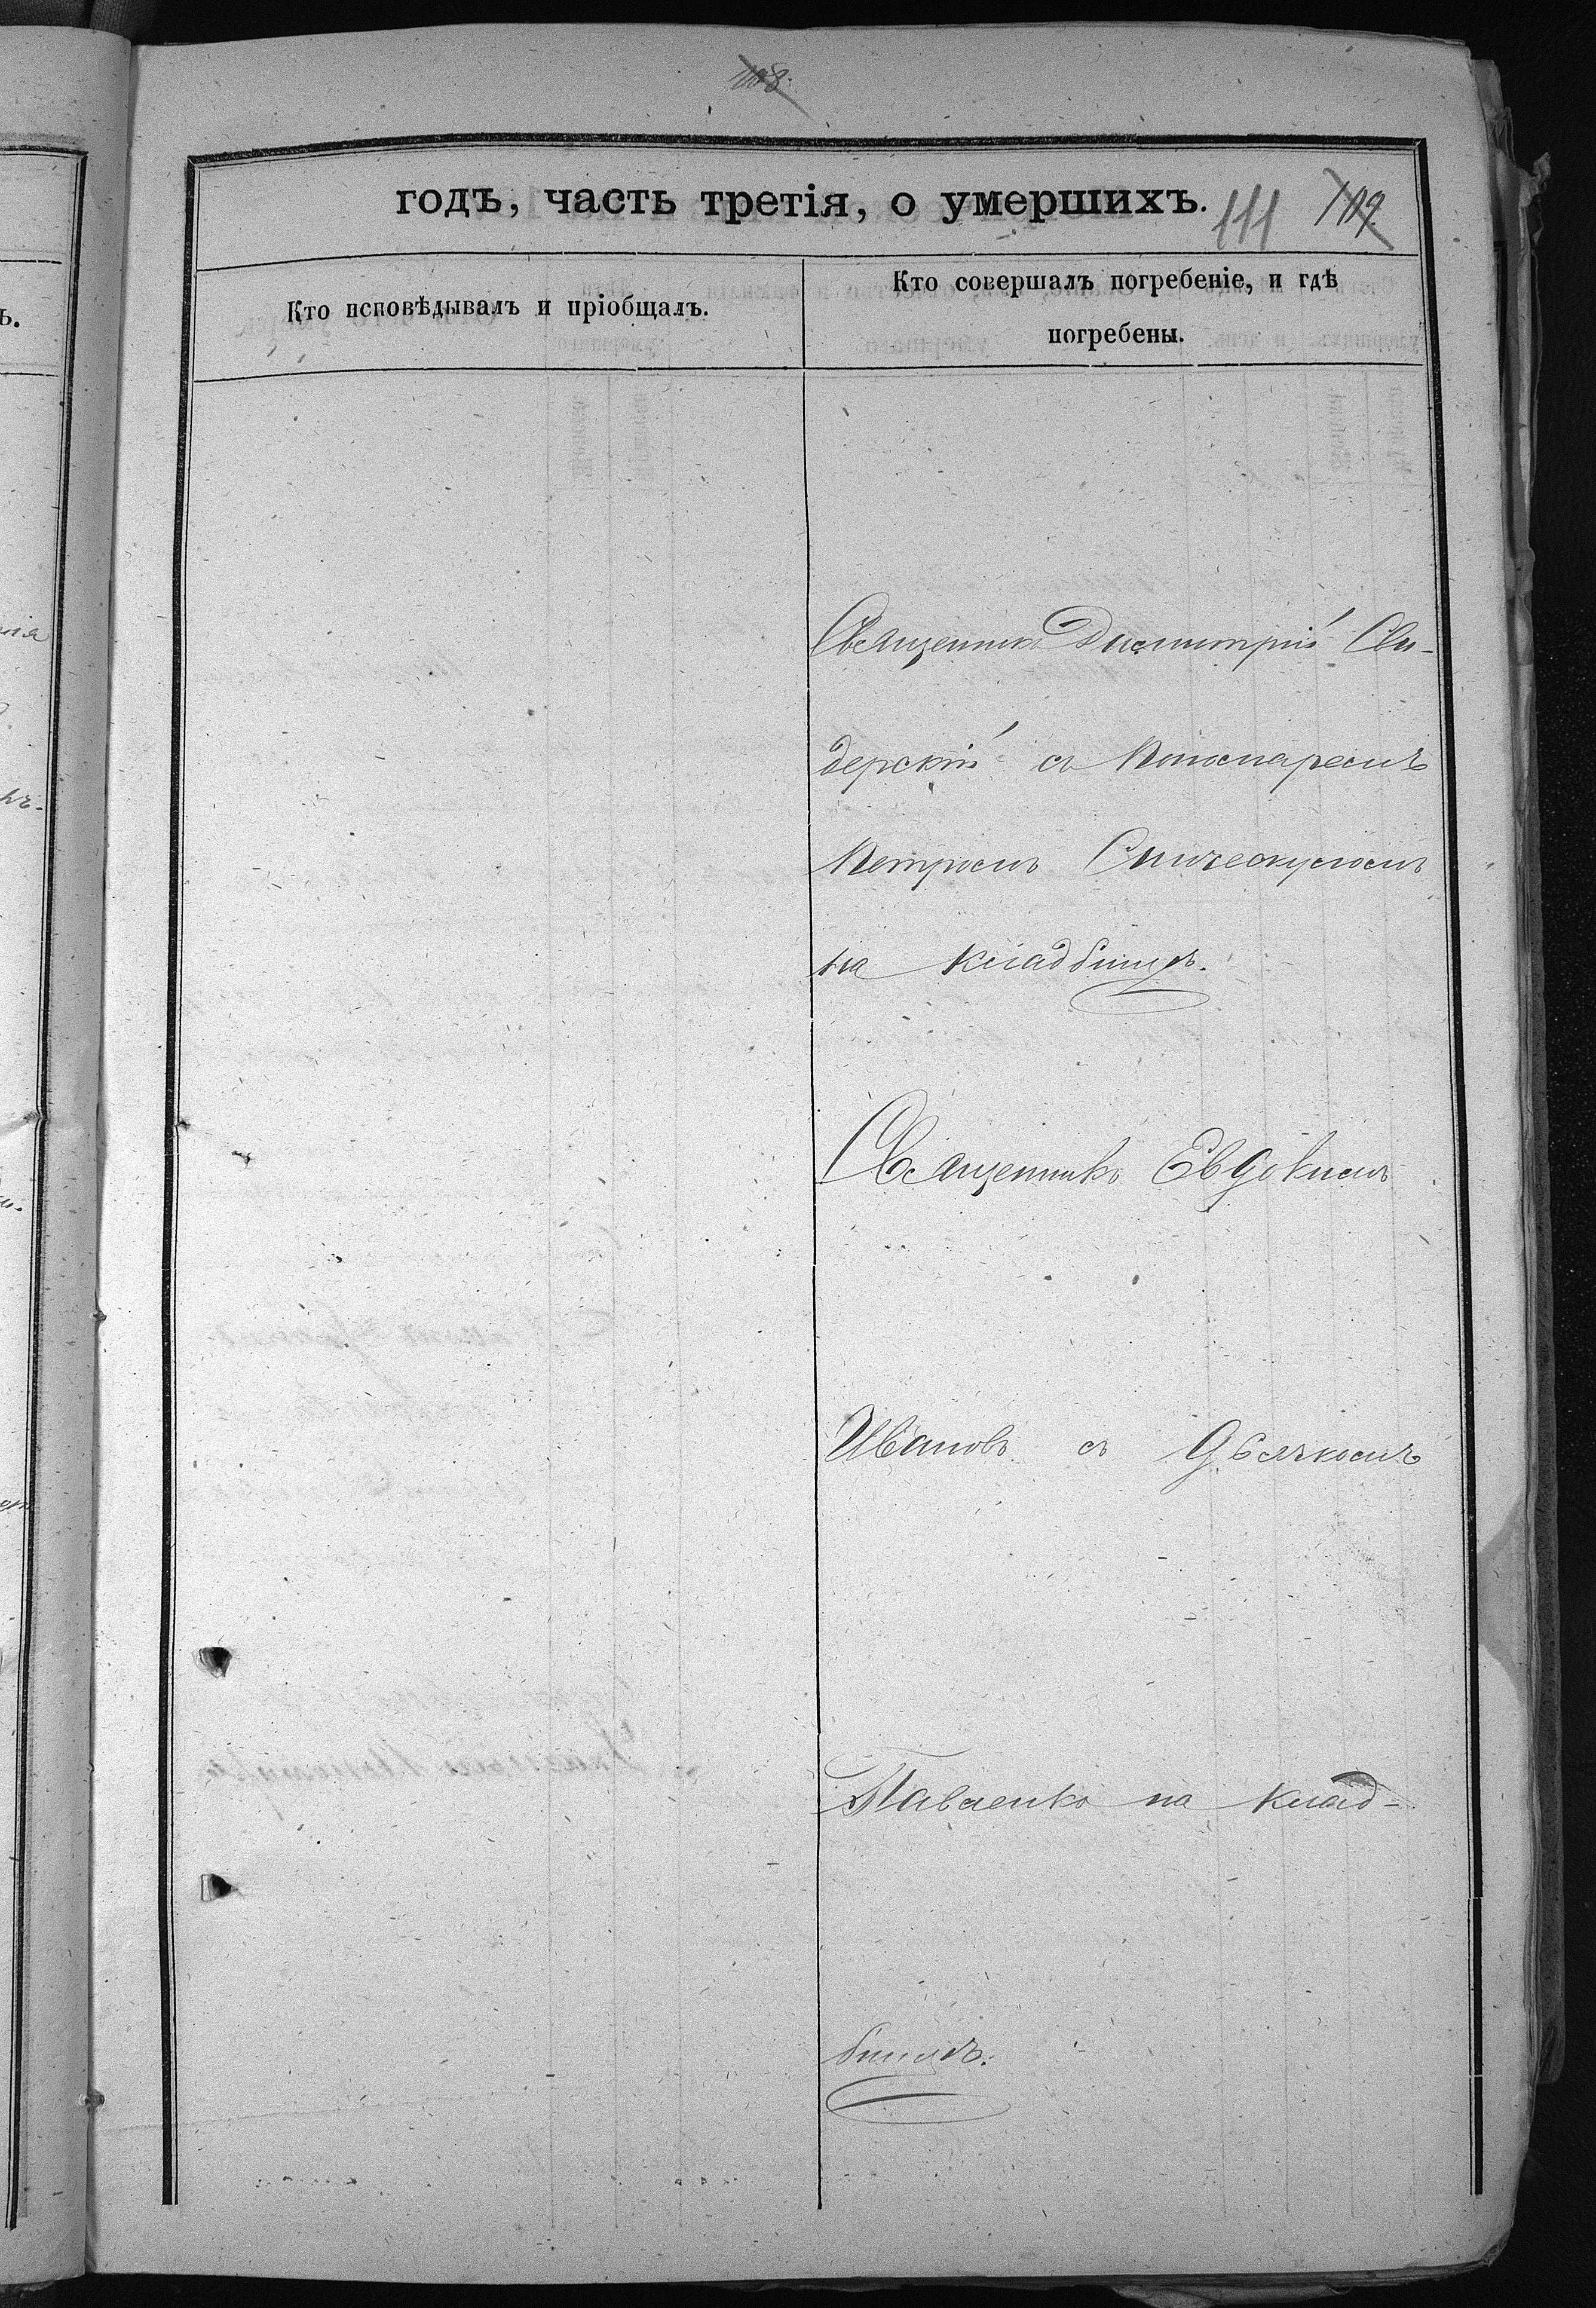 108.
годъ, часть третія, о умершихъ. 111 109.
Кто исповѣдывалъ и пріобщалъ.
Кто совершалъ погребеніе, и гдѣ
погребены.
Священникъ Димитрій Сви-
дерскій съ Пономаремъ
Петромъ
на кладбищѣ.
Священникъ Евдокимъ
Ивановъ съ Дьячкомъ
Павленко на клад-
бищѣ.